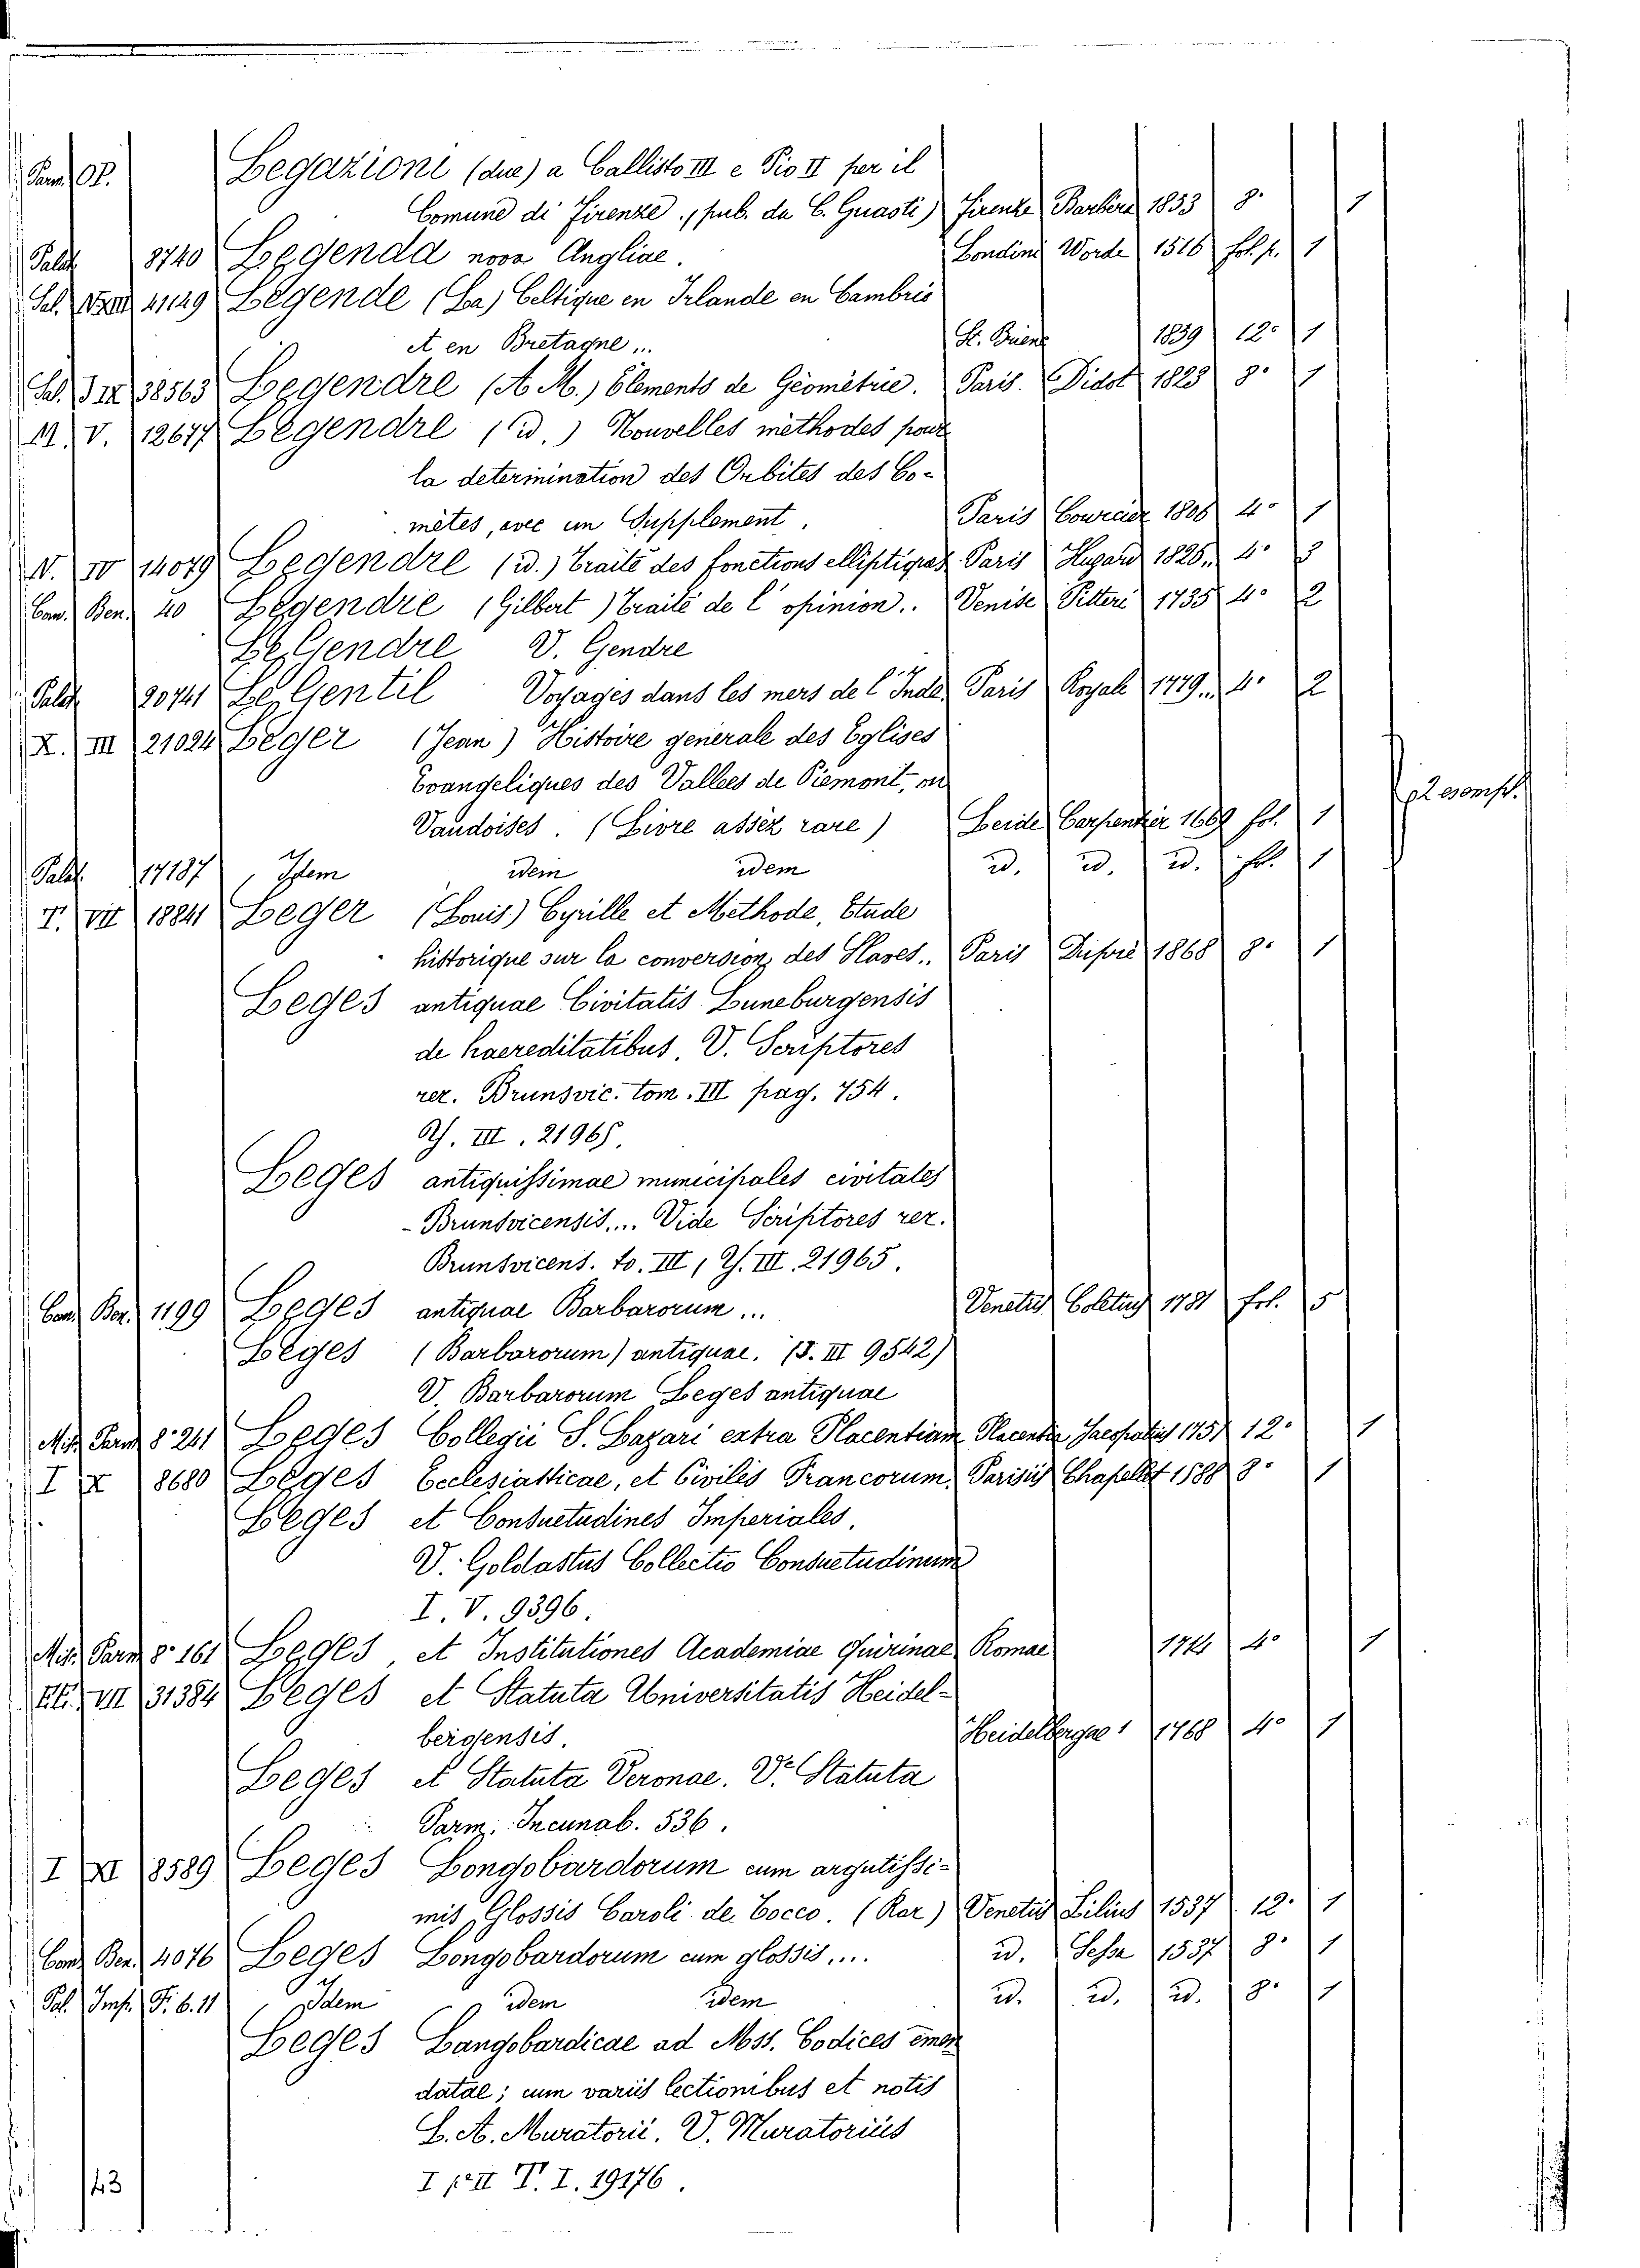 Legazioni (due) a Callisto III e Pio II per il
Comune di Firenze., pub. da C. Guasti) Firenze Barbera 1853 8. 1
Palat. 8740 Leggenda nova Angliae. Londini Worde 1516 fol. p. 1
41149 Legende (La) Celtique en Irlande en Cambrie
et en Bretagne... St. Brieuc 1839 12° 1
38563 Legendre (A. M.) Elements de Géométrie. Paris. Didot 1823 8° 1
M. V. 12677 Legendre (id.) Nouvelles méthodes pour
la determination des Orbites des Co-
mètes, avec un Supplement. Paris Courcier 1806 4° 1
N. IV 14079 Legendre (id.) Traité des fonctions elliptiques. Paris Huzard 1826.. 4° 3
Com. Ben. 40 Legendre (Gilbert) Traité de l'opinion.. Venise Pitteri 1735 4° 2
Le Gendre V. Gendre
Palat. 20741 Le Gentil Voyages dans les mers de l'Inde. Paris Royale 1779.. 4° 2
X. III 21024 Leger (Jean) Histoire generale des Eglises
Evangeliques des Vallees de Piemont, ou
Vaudoises. (Livre assez rare) Leide Carpentier 1669 fol. 1
Palat. 17187 Idem idem idem id. id. id. fol. 1
T. VII 18841 Leger (Louis) Cyrille et Methode, Etude
historique sur la conversion des Slaves.. Paris 1868 8° 1
Leges antiquae Civitatis Luneburgensis
de haereditatibus. V. Scriptores
rer. Brunsvic. tom. III pag. 754.
Y. III. 21965.
Leges antiquissimae municipales civitates
-Brunsvicensis.... Vide Scriptores rer.
Brunsvicens. to. III, Y. III. 21965.
Com. Ben. 1199 Leges antiquae Barbarorum... Venetiis Coletus 1781 fol. 5
Leges (Barbarorum) antiquae. (I. III 9542)
V. Barbarorum Leges antiquae
Mis. Parm 8° 241 Leges Collegii S. Lazari extra Placentiam Placentiae 1757 12° 1
I X 8680 Leges Ecclesiasticae, et Civiles Francorum. Parisiis Chapellet 1588 8° 1
Leges et Consuetudines Imperiales.
V. Goldastus Collectio Consuetudinum
I. V. 9396.
Mis. Parm 8° 161 Leges et Institutiones Academiae Quirinae Romae 1741 4° 1
VII 31384 Leges et Statuta Universitatis Heidel-
bergensis. Heidelbergae 1768 4° 1
Leges et Statuta Veronae. V. Statuta
Parm. Incunab. 536.
I XI 8589 Leges Longobardorum cum argutissi-
mis Glossis Caroli de Tocco. (Rar) Venetiis Lilius 1537 12. 1
Com. Ben. 4076 Leges Longobardorum cum glossis.... id. Sessa 1537 8. 1
Pal. Imp. F. 6. 11 Idem idem idem id. id. id. 8. 1
Leges Langobardicae ad Mss. Codices emen
datae; cum variis lectionibus et notis
L. A. Muratorii. V. Muratorius
I p. II T. I. 19176.
43